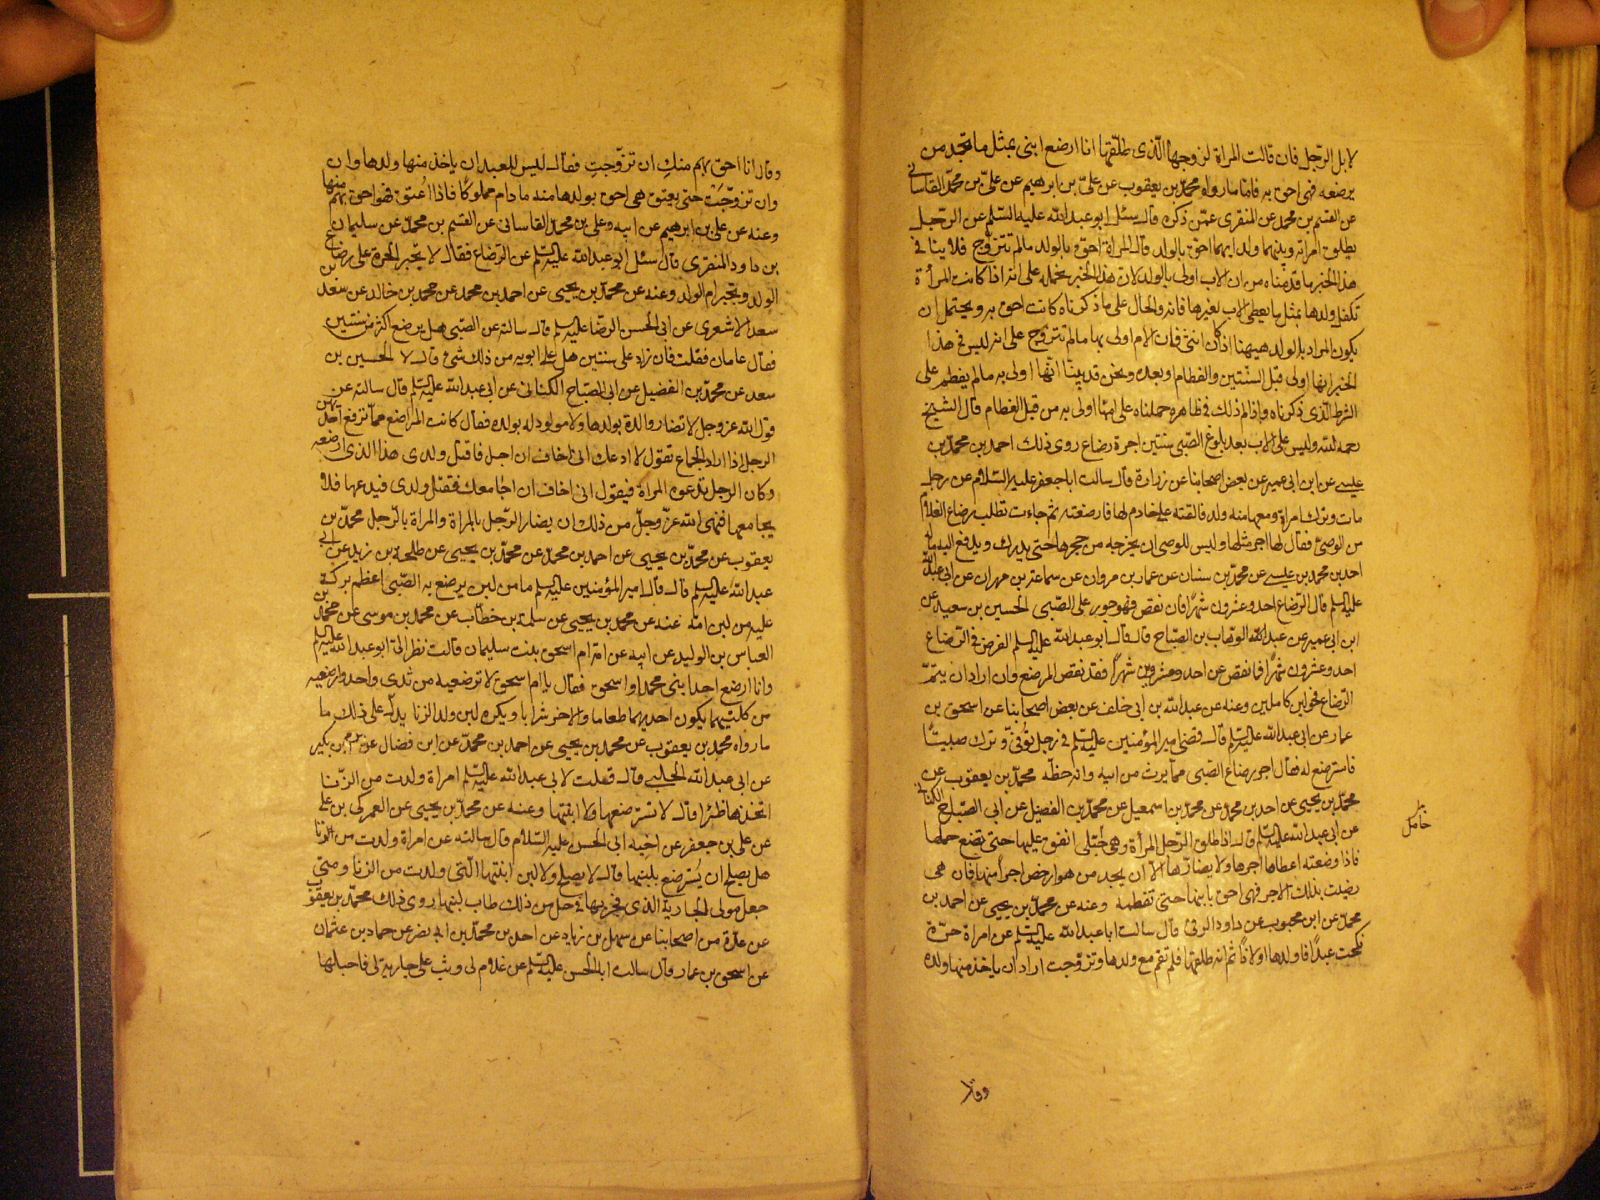 لابل الرّجل فان قالت المراة لزوجها الّذى طلّقها انا ارضع ابنى بمثل ما تجد من
يرضعه فهى احق به فامّا ما رواه محمّد بن يعقوب عن علىّ بن ابرهيم عن علىّ بن محمّد القاسانى
عن القسم بن محمد عن المنقرى عمّن ذكره قال سئل ابوعبد الله عليه السّلم عن الرّجل
يطلق امراته وبينهما ولد ايهما احق بالولد قال المراة احق بالولد مالم تتزوّج فلا ينافى
هذا الخبر ما قدمناه من ان الاب اولى بالولد لان هذا الخبر نحمله على انه اذا كانت المرأة
تكفل ولدها بمثل ما يعطى الاب لغيرها فانه والحال على ما ذكرناه كانت احق به ويحتمل ان
يكون المراد بالولد هيهنا اذا كان انثى فان الام اولى بها مالم تتزوّج على انه ليس فى هذا
الخبر انها اولى قبل السنتين والفطام وبعده ونحن قد بيّنا انّها اولى به مالم يفطم على
الشرط الّذى ذكرناه واذا لم ذلك فى ظاهره حملناه على انها اولى به من قبل الفطام قال الشيخ
رحمه الله وليس على الاب بعد بلوغ الصّبى سنتين اجرة رضاع روى ذلك احمد بن محمّد بن
عيسى عن ابن ابى عمير عن بعض اصحابنا عن زرارة قال سالت ابا جعفر عليه السّلام عن رجل
مات وترك امراة ومعها منه ولد فالقته على خادم لها فارضعته ثم جاءت تطلب رضاع الغلام
من الوصى فقال لها اجر مثلها وليس للوصى ان يخرجه من حجرها حتى يدرك ويدفع اليه ماله
احمد بن محمد بن عيسى عن محمّد بن سنان عن عمار بن مروان عن سماعة بن مهران عن ابى عبد الله
عليه السلم قال الرّضاع احد وعشرون شهرًا فان نقص فهو جور على الصّبى الحسين بن سعيد عن
ابن ابى عمير عن عبد الوهّاب بن الصّباح قال قال ابو عبد الله عليه السلم الفرض فى الرّضاع
احد وعشرون شهرًا فما نقص عن احد وعشرين شهرًا فقد نقص المرضع وان اراد ان يتمّ
الرّضاع فحولين كاملين وعنه عن عبد الله بن ابى خلف عن بعض اصحابنا عن اسحق بن
عمار عن ابى عبد الله عليه السلم قال قضى امير المؤمنين عليه السلم فى رجل توفّى وترك صبيًّا
فاسترضع له فقال اجر رضاع الصّبى ممّا يرث من ابيه وانه حظّه محمّد بن يعقوب عن
محمّد بن يحيى عن احمد بن محمد عن محمّد بن اسمعيل عن محمّد بن الفضيل عن ابى الصّباح الكنانى
عن ابى عبد الله عليه السلم قال اذا طلق الرّجل المرأة وهى حُبلى انفق عليها حتى تضع حملها
فاذا وضعته اعطاها اجرها ولا يضارّها الّا ان يجد من هو ارخص اجرًا منها فان هى
رضيت بذلك الاجر فهى احق بابنها حتى تفطمه وعنه عن محمّد بن يحيى عن احمد بن
محمّد عن ابن محبوب عن داود الرقى قال سالت ابا عبد الله عليه السلم عن امراة حرّة
نكحت عبدًا فاولدها اولادًا ثم انه طلقها فلم تقم مع ولدها وتزوّجت اراد ان ياخذ منها ولده
حامل
وقال
وقال انا احق بهم منكِ ان تزوّجتِ فقال ليس للعبد ان ياخذ منها ولدها وان
وان تزوّجت حتى يعتق هى احق بولدها منه ما دام مملوكًا فاذا اُعتق فهو احق بهم منها
وعنه عن على بن ابرهيم عن ابيه وعلى بن محمّد القاسانى عن القسم بن محمّد عن سليمان
بن داود المنقرى قال سئل ابو عبد الله عليه السلم عن الرّضاع فقال لا تجبر الحرة على رضاع
الولد وتجبر ام الولد وعنه عن محمّد بن يحيى عن احمد بن محمد عن محمد بن خالد عن سعد بن
سعد الاشعرى عن ابى الحسن الرضا عليه السلم قال سالته عن الصّبى هل يرضع اكثر من سنتين
فقال عامان فقلت فان زاد على سنتين هل على ابويه من ذلك شئ قال لا الحسين بن
سعد عن محمّد بن الفضيل عن ابى الصّباح الكنانى عن ابى عبد الله عليه السلم قال سالته عن
قول الله عز وجل لا تضار والدة بولدها ولا مولود له بولده فقال كانت المراضع ممّا تدفع احديهن
الرجل اذا اراد الجماع تقول لا ادعك انى اخاف ان احبل فاقتل ولدى هذا الذى ارضعه
وكان الرجل تدعوه المراة فيقول انى اخاف ان اجامعك فقتل ولدى فيدعها فلا
يجامعها فنهى الله عزّ وجلّ من ذلك ان يضار الرّجل بالمراة والمراة بالرّجل محمّد بن
يعقوب عن محمّد بن يحيى عن احمد بن محمّد عن محمّد بن يحيى عن طلحة بن زيد عن ابى
عبد الله عليه السلم قال قال امير المؤمنين عليه السلم ما من لبن يرضع به الصّبى اعظم بركة
عليه من لبن امّه عنه عن محمد بن يحيى عن سلمة بن خطّاب عن محمد بن موسى عن محمد بن
العباس بن الوليد عن ابيه عن امّه ام اسحق بنت سليمان قالت نظر الىّ ابو عبد الله عليه السلم
وانا ارضع احد ابنى محمدا واسحق فقال يا ام اسحق لا ترضعيه من ثدى واحد وارضعيه
من كلتيهما يكون احدهما طعاما والاخر شرابا ويكره لبن ولد الزنا يدل على ذلك ما
مارواه محمّد بن يعقوب عن محمد بن يحيى عن احمد بن محمّد عن ابن فضال عن ابن بكير
عن ابى عبد الله الحلبى قال قلت لابى عبد الله عليه السلم امراة ولدت من الزّنا
اتخذها ظئرًا قال لا تسترضعها ولا ابنتها وعنه عن محمّد بن يحيى عن العمركى بن على
عن على بن جعفر عن اخيه ابى الحسن عليه السّلام قال سالته عن امراة ولدت من الزنا
هل يصلح ان يُسترضع بلبنها قال لا يصلح ولا لبن ابنتها الّتى ولدت من الزنا ومتى
جعل مولى الجارية الذى فجر بها فى حل من ذلك طاب لبنها روى ذلك محمّد بن يعقوب
عن عدّة من اصحابنا عن سهل بن زياد عن احمد بن محمّد بن ابى نصر عن حماد بن عثمان
عن اسحق بن عمار قال سالت ابا الحسن عليه السلم عن غلام لى وثب على جارية لى فاحبلها